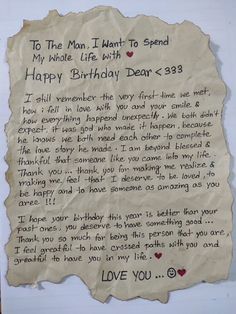 To The Man, I Want To Spend
My Whole Life with ❤
Happy Birthday Dear <333
I still remember the very first time we met,
how i fell in love with you and your smile &
how everything happend unexpectly. We both didn't
expect, it was god who made it happen, because
he knows we both need each other to complete
the love story he made. I am beyond blessed &
thankful that someone like you came into my life.
Thank you ... thank you for making me realize &
making me feel that I deserve to be loved, to
be happy and to have someone as amazing as you
aree !!!
I hope your birthday this year is better than your
past ones, you deserve to have something good...
Thank you so much for being this person that you are,
I feel greatful to have crossed paths with you and
greatful to have you in my life. ❤
LOVE YOU ... ☺❤